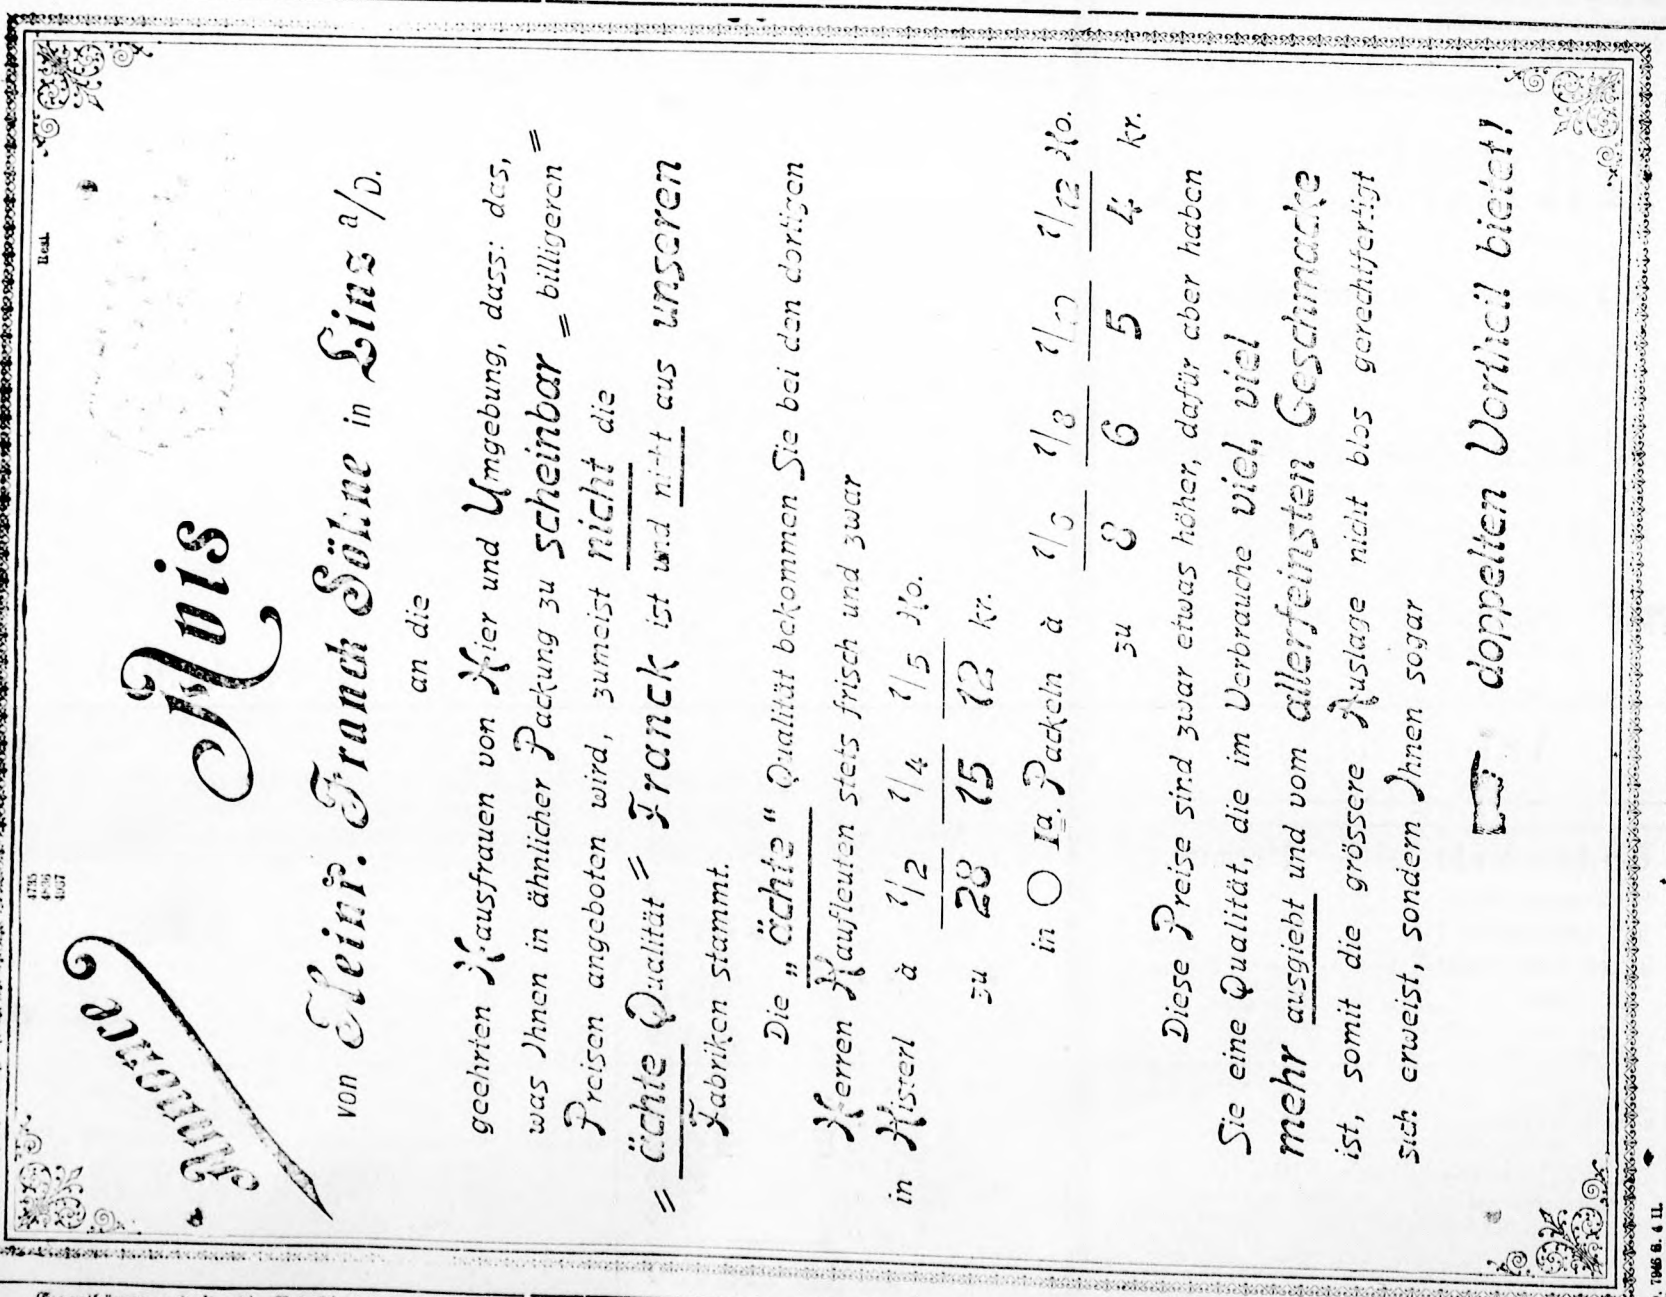 Annonce
4735
4836
4967
Rest.
Avis
von Heinr. Franck Söhne in Linz a/D.
an die
geehrten Hausfrauen von Hier und Umgebung, dass: das,
was Ihnen in ähnlicher Packung zu scheinbar = billigeren =
Preisen angeboten wird, zumeist nicht die
= ächte Qualität = Franck ist und nicht aus unseren
Fabriken stammt.
Die „ächte" Qualität bekommen Sie bei den dortigen
Herren Kaufleuten stets frisch und zwar
in Kisterl à 1/2 1/4 1/5 Ko.
zu 28 15 12 kr.
in Ia. Packeln à 1/6 1/8 1/10 1/12 Ko.
zu 8 6 5 4 kr.
Diese Preise sind zwar etwas höher, dafür aber haben
Sie eine Qualität, die im Verbrauche viel, viel
mehr ausgiebt und vom allerfeinsten Geschmacke
ist, somit die grössere Auslage nicht blos gerechtfertigt
sich erweist, sondern Ihnen sogar
doppelten Vortheil bietet!
6. 4 II.